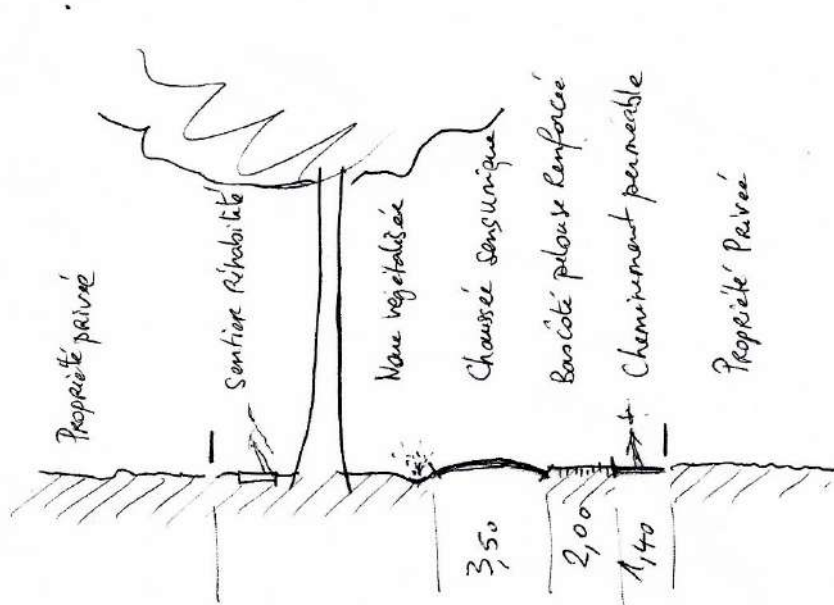 Propriété privée
Sentier réhabilité
Noue végétalisée
Chaussée sens unique
Bas côté pelouse Renforcée
Cheminement perméable
Propriété Privée
3,50
2,00
1,40